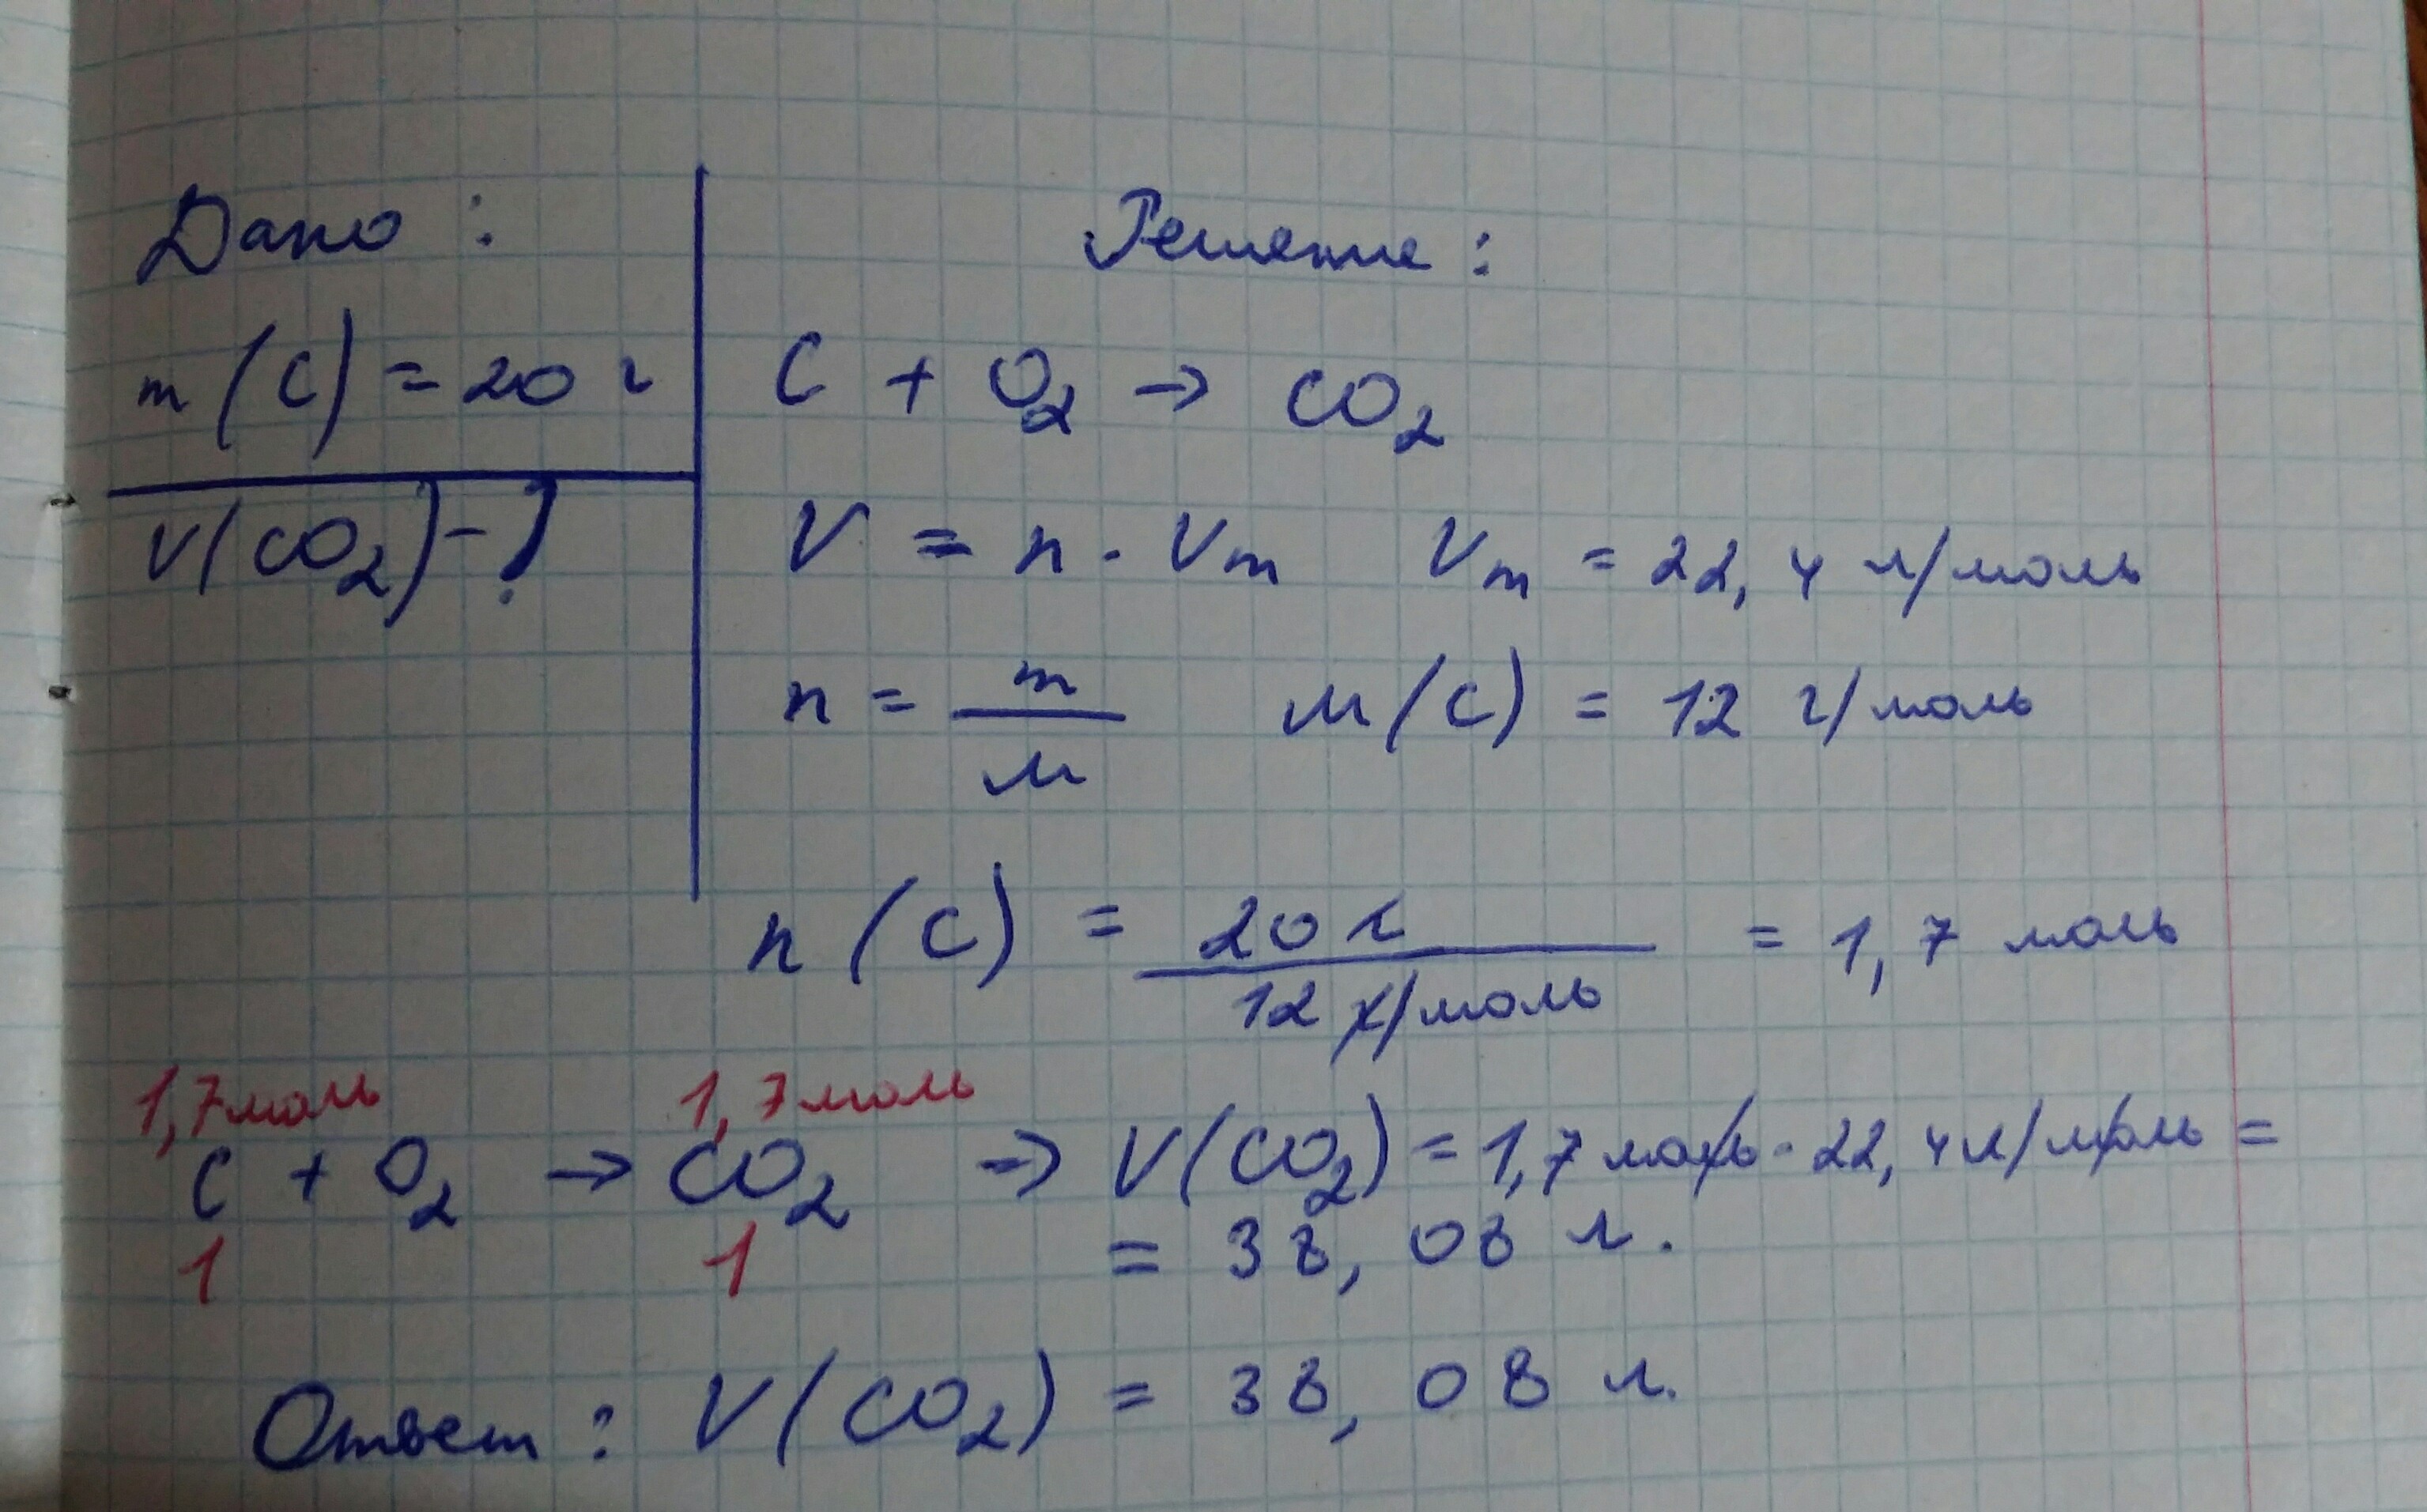 Дано :
m (C) = 20 г
V(CO₂) - ?
Решение :
C + O₂ → CO₂
V = n · Vm   Vm = 22,4 л/моль
n = m / M   M (C) = 12 г/моль
n (C) = 20 г / 12 г/моль = 1,7 моль
1,7 моль   1,7 моль
C + O₂ → CO₂ ⇒ V(CO₂) = 1,7 моль · 22,4 л/моль =
1   1   = 38,08 л.
Ответ : V(CO₂) = 38,08 л.